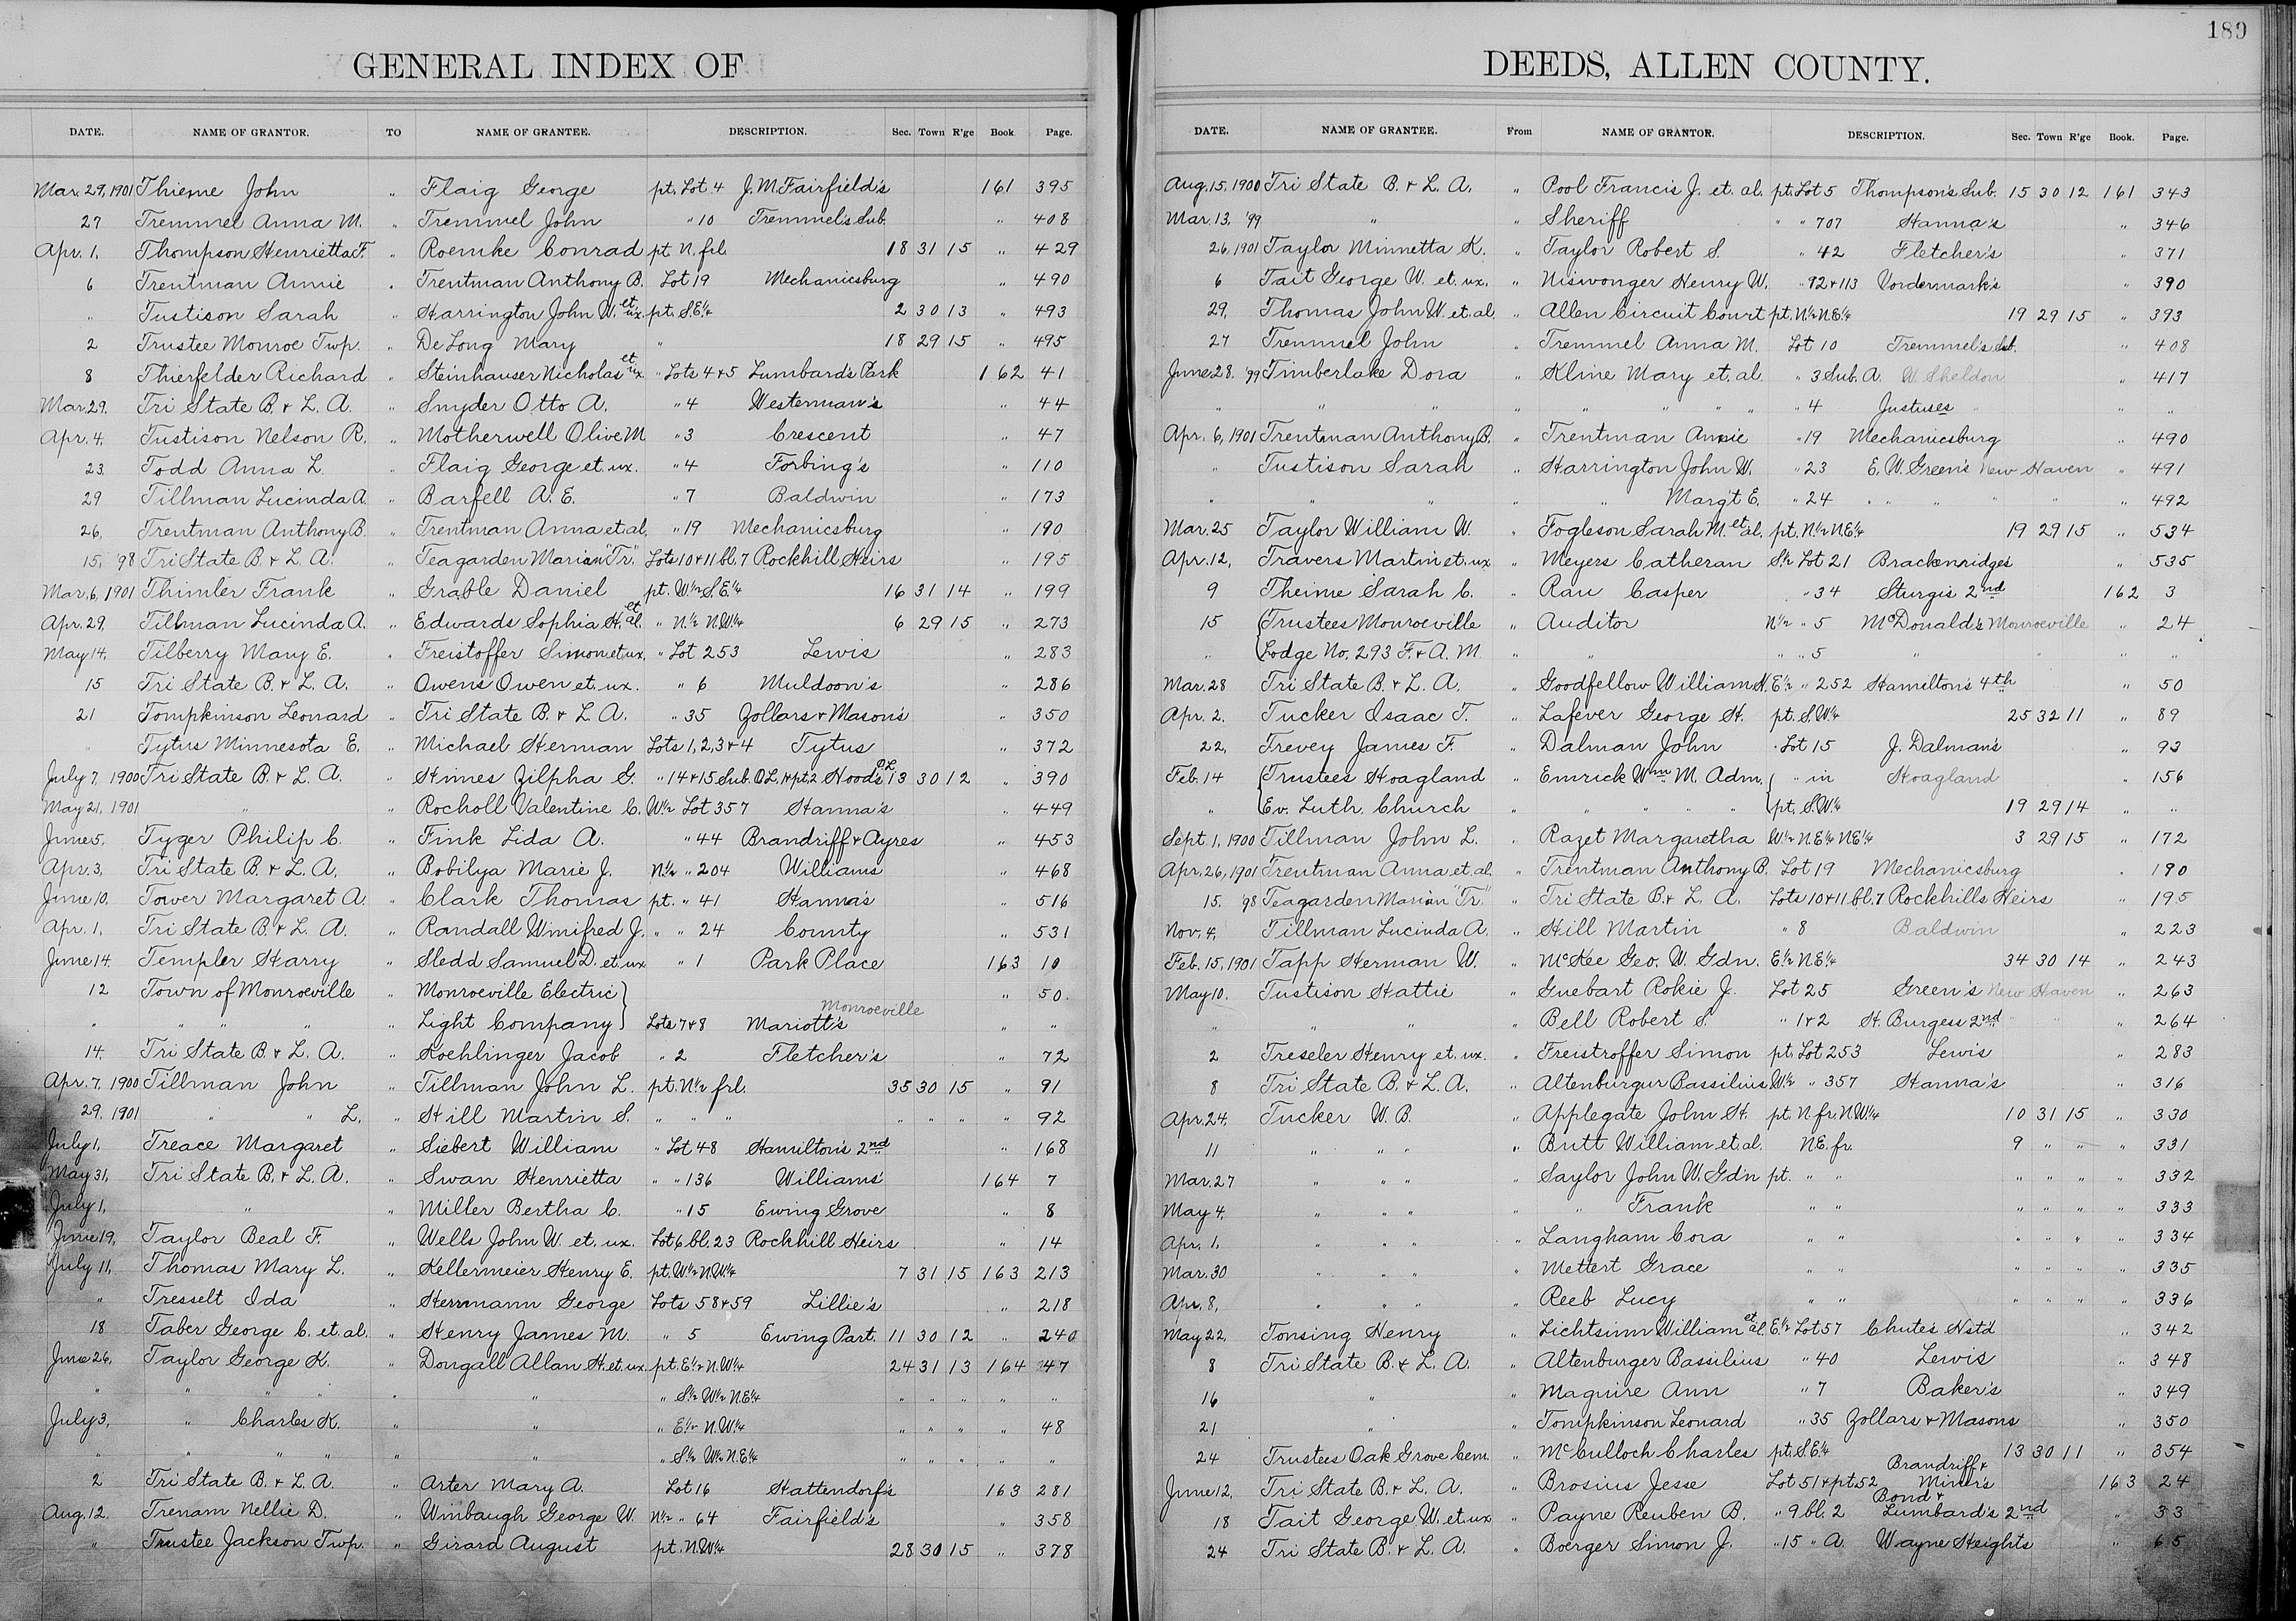 GENERAL INDEX OF
DATE. NAME OF GRANTOR. TO NAME OF GRANTEE. DESCRIPTION. Sec. Town R'ge Book Page.
Mar. 29, 1901 Thieme John " Flaig George pt. Lot 4 J. M. Fairfield's 161 395
27 Tremmel Anna M. " Tremmel John " 10 Tremmel's Sub. " 408
Apr. 1, Thompson Henrietta F. " Roemke Conrad pt. N. frl. 18 31 15 " 429
6 Trentman Annie " Trentman Anthony B. Lot 19 Mechanicsburg " 490
" Tustison Sarah " Harrington John W. et ux. pt. S.E¼ 2 30 13 " 493
2 Trustee Monroe Twp. " DeLong Mary " 18 29 15 " 495
8 Thierfelder Richard " Steinhauser Nicholas et ux. " Lots 4 & 5 Lumbard's Park 162 41
Mar. 29, Tri State B. & L. A. " Snyder Otto A. " 4 Westerman's " 44
Apr. 4, Tustison Nelson R. " Motherwell Olive M " 3 Crescent " 47
23 Todd Anna L. " Flaig George et. ux. " 4 Forbing's " 110
29 Tillman Lucinda A. " Barfell A. E. " 7 Baldwin " 173
26, Trentman Anthony B. " Trentman Anna et al, " 19 Mechanicsburg " 190
15, '98 Tri State B. & L. A. " Teagarden Marian "Tr." Lots 10 & 11 bl. 7 Rockhill Heirs " 195
Mar. 6, 1901 Thimler Frank " Grable Daniel pt. W½ S.E¼ 16 31 14 " 199
Apr. 29, Tillman Lucinda A. " Edwards Sophia H. et al. " N½ N.W¼ 6 29 15 " 273
May 14, Tilberry Mary E. " Freistoffer Simon et ux. " Lot 253 Lewis " 283
15 Tri State B. & L. A. " Owens Owen et. ux. " 6 Muldoon's " 286
21 Tompkinson Leonard " Tri State B. & L. A. " 35 Zollars & Mason's " 350
" Tytus Minnesota E. " Michael Herman Lots 1, 2, 3 & 4 Tytus " 372
July 7, 1900 Tri State B. & L. A. " Himes Zilpha G. " 14 & 15 Sub. O.L. 1 & pt. 2 Hood's O.L. 13 30 12 " 390
May 21, 1901 " " Rocholl Valentine C. W½ Lot 357 Hanna's " 449
June 5, Tyger Philip C. " Fink Lida A. " 44 Brandriff & Ayres " 453
Apr. 3, Tri State B. & L. A. " Bobilya Marie J. N½ " 204 Williams " 468
June 10, Tower Margaret A. " Clark Thomas pt. " 41 Hanna's " 516
Apr. 1, Tri State B. & L. A. " Randall Winifred J. " " 24 County " 531
June 14, Templer Harry " Sledd Samuel D. et ux " 1 Park Place 163 10
12 Town of Monroeville " Monroeville Electric " 50.
" " " " " Light Company Lots 7 & 8 Mariott's Monroeville " "
14, Tri State B. & L. A. " Koehlinger Jacob " 2 Fletcher's " 72
Apr. 7, 1900 Tillman John " Tillman John L. pt. N½ frl. 35 30 15 " 91
29, 1901 " " L. " Hill Martin S. " " " " " " " 92
July 1, Treace Margaret " Siebert William " Lot 48 Hamilton's 2nd " 168
May 31, Tri State B. & L. A. " Swan Henrietta " " 136 Williams' 164 7
July 1, " " Miller Bertha C. " 15 Ewing Grove " 8
June 19, Taylor Beal F. " Wells John W. et. ux. Lot 6 bl. 23 Rockhill Heirs " 14
July 11, Thomas Mary L. " Kellermeier Henry E. pt. W½ N.W¼ 7 31 15 163 213
" Tresselt Ida " Herrmann George Lots 58 & 59 Lillie's " 218
18 Taber George C. et. al. " Henry James M. " 5 Ewing Part. 11 30 12 " 240
June 26, Taylor George K. " Dougall Allan H. et. ux. pt. E½ N.W¼ 24 31 13 164 47
" " " " " " " S½ W½ N.E¼ " " " " "
July 3, " Charles K. " " " E½ N.W¼ " " " " 48
" " " " " " " S½ W½ N.E¼ " " " " "
2 Tri State B. & L. A. " Arter Mary A. Lot 16 Hattendorf's 163 281
Aug. 12. Trenam Nellie D. " Winbaugh George W. N½ " 64 Fairfield's " 358
" Trustee Jackson Twp. " Girard August pt. N.W¼ 28 30 15 " 378
189
DEEDS, ALLEN COUNTY.
DATE. NAME OF GRANTEE. From NAME OF GRANTOR. DESCRIPTION. Sec. Town R'ge Book. Page.
Aug. 15, 1900 Tri State B. & L. A. " Pool Francis J. et. al. pt. Lot 5 Thompson's Sub. 15 30 12 161 343
Mar. 13, '99 " " Sheriff " " 707 Hanna's " 346
26, 1901 Taylor Minnetta K. " Taylor Robert S. " 42 Fletcher's " 371
6 Tait George W. et. ux. " Niswonger Henry W. " 92 & 113 Vordermark's " 390
29, Thomas John W. et. al. " Allen Circuit Court pt. N½ N.E¼ 19 29 15 " 393
27 Tremmel John " Tremmel Anna M. Lot 10 Tremmel's Sub. " 408
June 28, '99 Timberlake Dora " Kline Mary et. al. " 3 Sub. A. W. Sheldon " 417
" " " " " " " " " 4 Justuses " " "
Apr. 6, 1901 Trentman Anthony B. " Trentman Annie " 19 Mechanicsburg " 490
" Tustison Sarah " Harrington John W. " 23 E. W. Green's New Haven " 491
" " " " " Marg't E. " 24 " " " " " " 492
Mar. 25 Taylor William W. " Fogleson Sarah M. et al. pt. N½ N.E¼ 19 29 15 " 534
Apr. 12, Travers Martin et. ux " Meyers Catheran S½ Lot 21 Brackenridges " 535
9 Theime Sarah C. " Rau Casper " 34 Sturgis 2nd 162 3
15 Trustees Monroeville " Auditor N½ " 5 McDonald's Monroeville " 24
" Lodge No. 293 F. & A. M. " " " " 5 " " " "
Mar. 28 Tri State B. & L. A. " Goodfellow William H. E½ " 252 Hamilton's 4th " 50
Apr. 2. Tucker Isaac T. " Lafever George H. pt. S.W¼ 25 32 11 " 89
22, Trevey James F. " Dalman John " Lot 15 J. Dalman's " 93
Feb. 14 Trustees Hoagland " Emrick Wm M. Adm. " in Hoagland " 156
" Ev. Luth. Church " " " " " pt. S.W¼ 19 29 14 " "
Sept. 1, 1900 Tillman John L. " Razet Margaretha W½ N.E¼ N.E¼ 3 29 15 " 172
Apr. 26, 1901 Trentman Anna et. al. " Trentman Anthony B. Lot 19 Mechanicsburg " 190
15, '98 Teagarden Marian "Tr." " Tri State B. & L. A. Lots 10 & 11 bl. 7 Rockhills Heirs " 195
Nov. 4, Tillman Lucinda A. " Hill Martin " 8 Baldwin " 223
Feb. 15, 1901 Tapp Herman W. " McKee Geo. W. Gdn. E½ N.E¼ 34 30 14 " 243
May 10. Tustison Hattie " Guebart Rokie J. Lot 25 Green's New Haven " 263
" " " " Bell Robert S. " 1 & 2 H. Burgess 2nd " " " 264
2 Treseler Henry et. ux. " Freistroffer Simon pt. Lot 253 Lewis " 283
8 Tri State B. & L. A. " Altenburgur Bassilius W½ " 357 Hanna's " 316
Apr. 24, Tucker W. B. " Applegate John H. pt. N. fr. N.W¼ 10 31 15 " 330
11 " " " " Butt William et. al. N.E. fr. 9 " " " 331
Mar. 27 " " " " Saylor John W. Gdn pt. " " " " " " 332
May 4, " " " " " Frank " " " " " " 333
Apr. 1, " " " " Langham Cora " " " " " " 334
Mar. 30 " " " " Mettert Grace " " " " " " 335
Apr. 8, " " " " Reeb Lucy " " " " " " 336
May 22, Tonsing Henry " Lichtsinn William et al. E½ Lot 57 Chute's Hstd " 342
8 Tri State B. & L. A. " Altenburger Bassilius " 40 Lewis " 348
16 " " Maguire Ann " 7 Baker's " 349
21 " " Tompkinson Leonard " 35 Zollars & Masons " 350
24 Trustees Oak Grove Cem. " McCulloch Charles pt. S.E¼ 13 30 11 " 354
June 12, Tri State B. & L. A. " Brosius Jesse Lot 51 & pt. 52 Brandriff & Miner's 163 24
18 Tait George W. et. ux " Payne Reuben B. " 9 bl. 2 Bond & Lumbard's 2nd " 33
24 Tri State B. & L. A. " Boerger Simon J. " 15 " A. Wayne Heights " 65